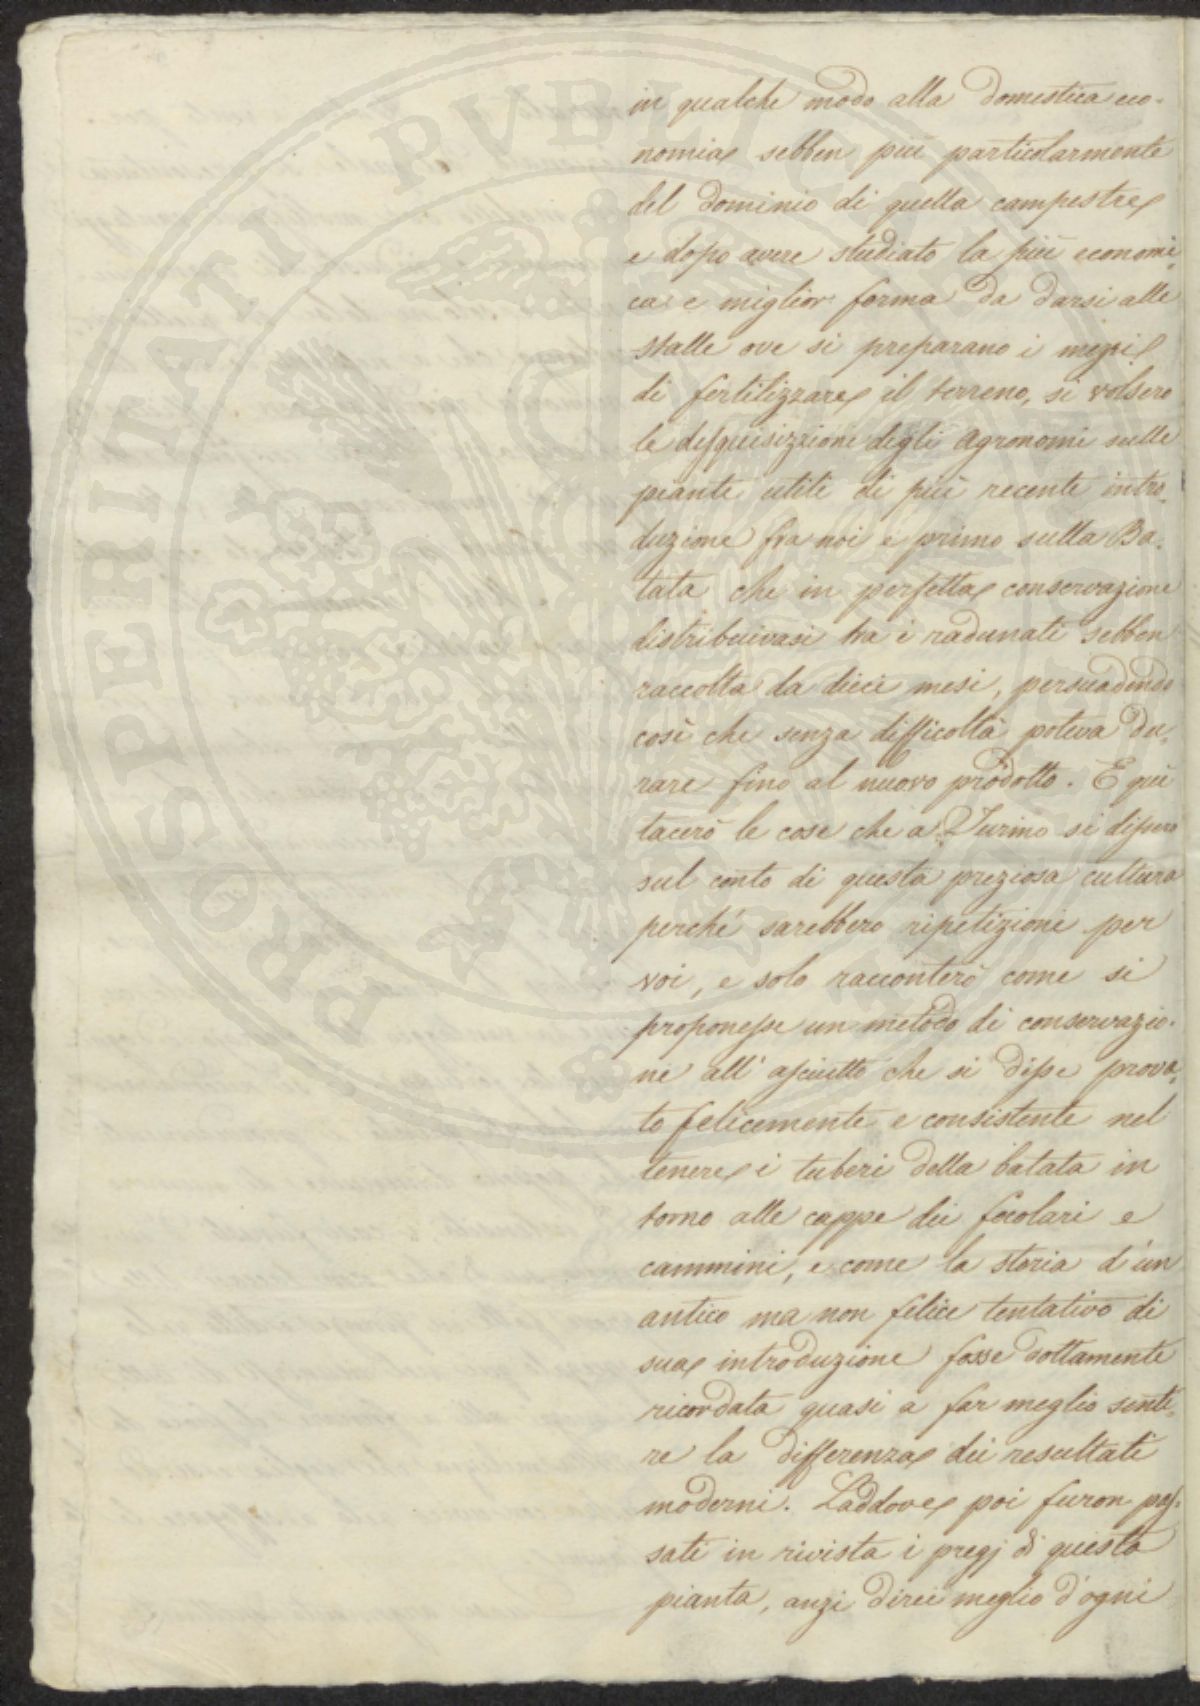 in qualche modo alla domestica eco-
nomia sebben più particolarmente
del dominio di quella campestre
e dopo avere studiato la più economi-
ca e miglior forma da darsi alle
stalle ove si preparano i mezzi
di fertilizzare il terreno, si volsero
le disquisizione degli Agronomi sulle
piante utili di più recente intro-
duzione fra noi e primo sulla Ba-
tata che in perfetta conservazione
distribuivasi tra i radunati sebben
raccolta da dieci mesi, persuadendo
così che senza difficoltà poteva du-
rare fino al nuovo prodotto. E quì
tacerò le cose che a Turino si dissero
sul conto di questa preziosa cultura
perché sarebbero ripetizioni per
voi, e solo racconterò come si
proponesse un metodo di conservazio-
ne all' asciutto che si disse prova-
to felicemente e consistente nel
tenere i tuberi della batata in
torno alle cappe dei focolari e
cammini, e come la storia d'un
antico ma non felice tentativo di
sua introduzione fosse dottamente
ricordata quasi a far meglio senti-
re la differenza dei resultati
moderni. Laddove poi furon pas-
sati in rivista i pregj di questa
pianta, anzi direi meglio d'ogni
PROSPERITATI PVBLICAE